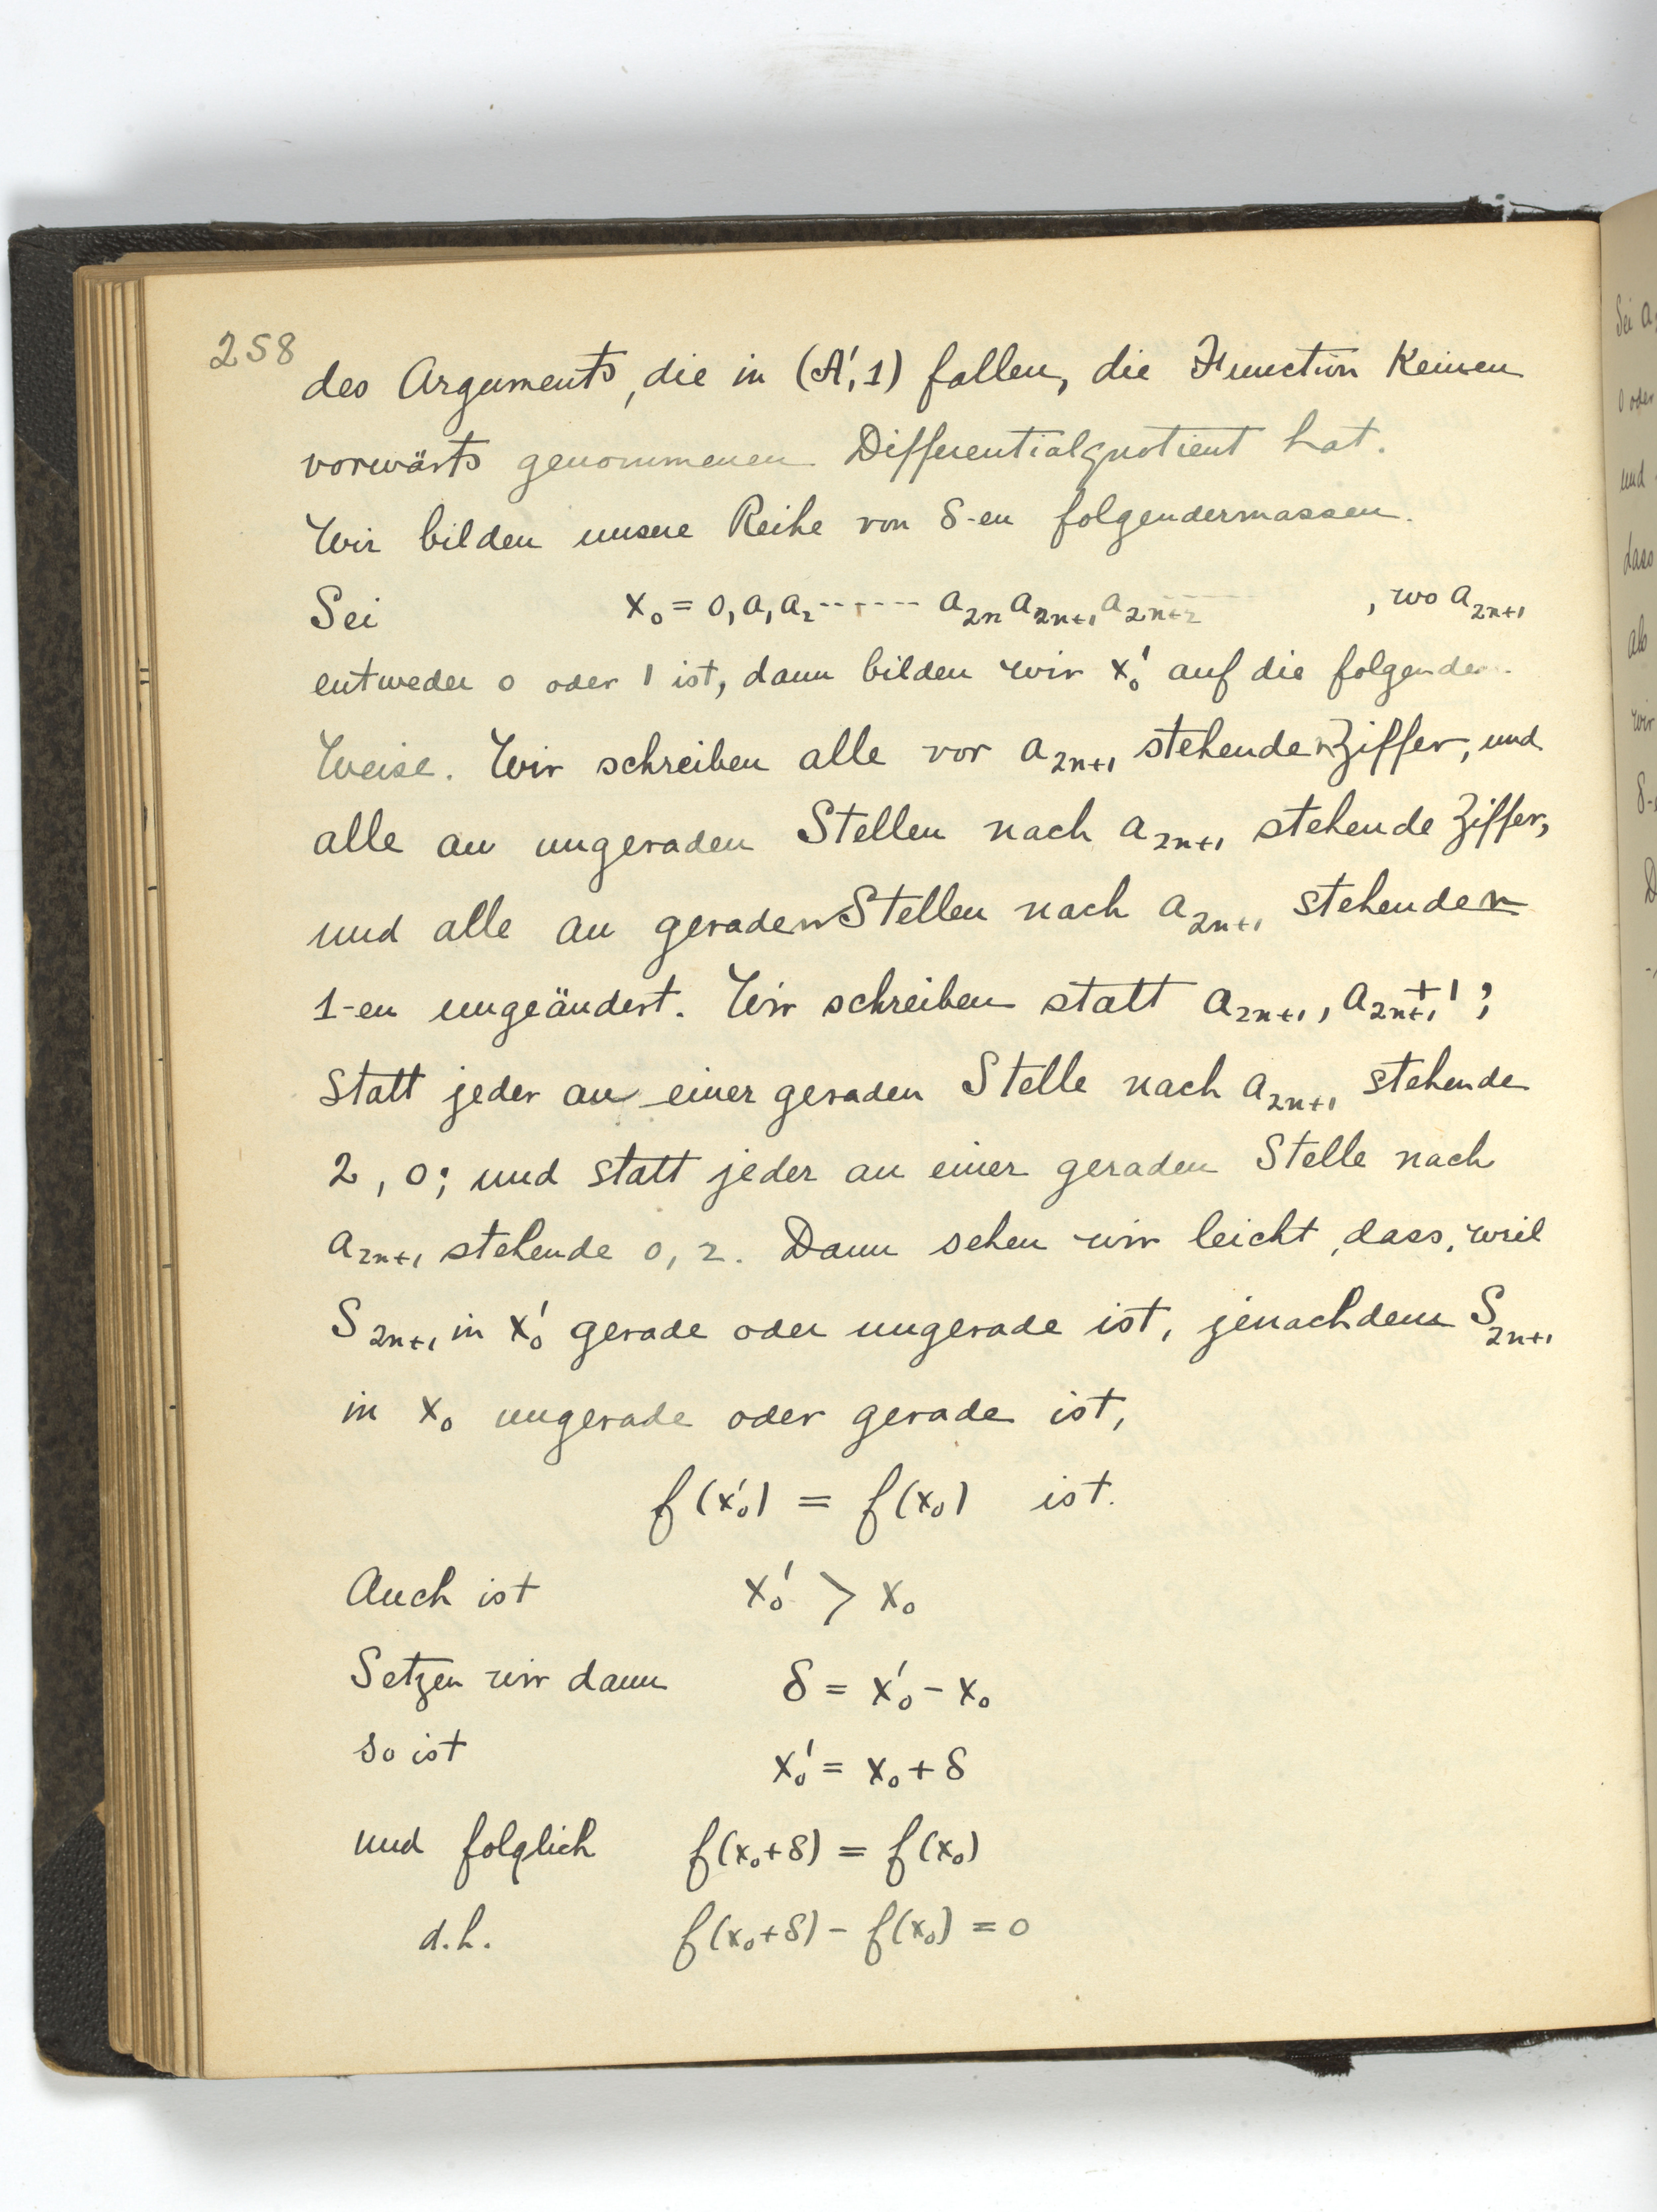 258
des Arguments, die in (A', 1) fallen, die Function keinen
vorwärts genommenen Differentialquotient hat.
Wir bilden unsere Reihe von δ-en folgendermassen.
Sei x₀ = 0, a₁ a₂ ------ a₂ₙ a₂ₙ₊₁ a₂ₙ₊₂ ------ , wo a₂ₙ₊₁
entweder 0 oder 1 ist, dann bilden wir x₀' auf die folgenden
Weise. Wir schreiben alle vor a₂ₙ₊₁ stehenden Ziffer, und
alle an ungeraden Stellen nach a₂ₙ₊₁ stehende Ziffer,
und alle an geraden Stellen nach a₂ₙ₊₁ stehenden
1-en umgeändert. Wir schreiben statt a₂ₙ₊₁, a₂ₙ₊₁+1;
statt jeder an einer geraden Stelle nach a₂ₙ₊₁ stehende
2, 0; und statt jeder an einer geraden Stelle nach
a₂ₙ₊₁ stehende 0, 2. Dann sehen wir leicht, dass, weil
S₂ₙ₊₁ in x₀' gerade oder ungerade ist, jenachdem S₂ₙ₊₁
in x₀ ungerade oder gerade ist,
f(x₀') = f(x₀) ist.
Auch ist x₀' > x₀
Setzen wir dann δ = x₀' - x₀
so ist x₀' = x₀ + δ
und folglich f(x₀+δ) = f(x₀)
d.h. f(x₀+δ) - f(x₀) = 0
Sei a
0 oder
und
dass
als
wir
δ-
D